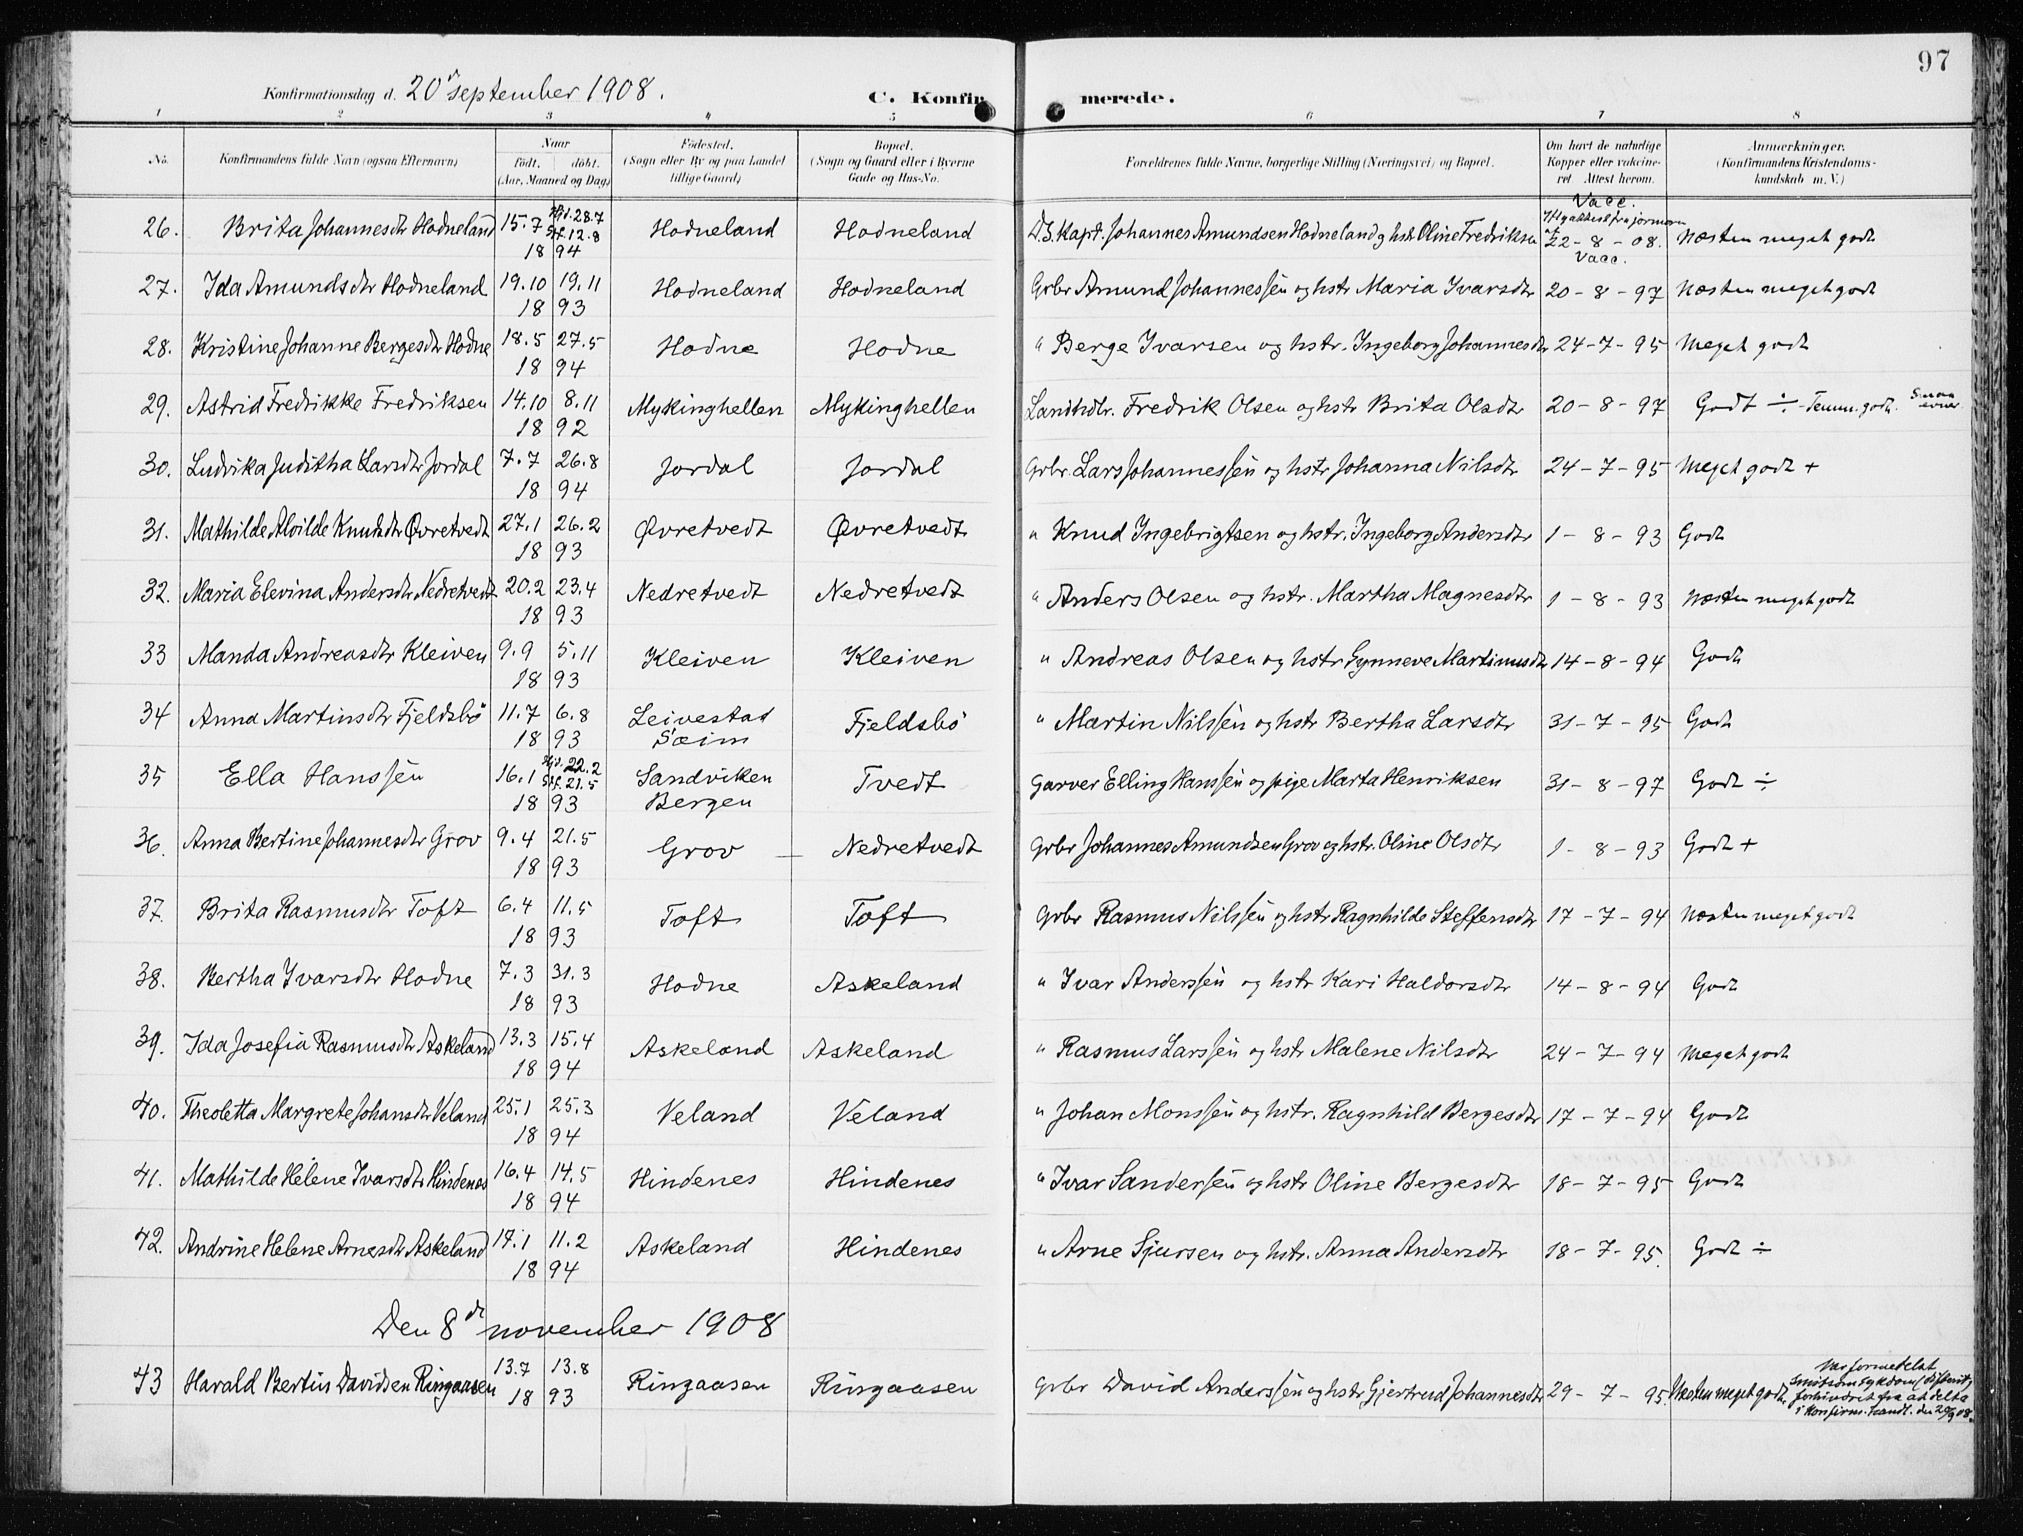 97
Konfirmationsdag d. 20de september 1908.
C. Konfir merede.
1 2 3 4 5 6 7 8
No. Konfirmandens fulde Navn (ogsaa Efternavn) Naar født. døbt. (Aar, Maaned og Dag) Fødested. (Sogn eller By og paa Landet tillige Gaard) Bopæl. (Sogn og Gaard eller i Byerne Gade og Hus-No. Forældrenes fulde Navne, borgerlige Stilling (Næringsvei) og Bopæl. Om havt de naturlige Kopper eller vakcineret. Attest herom. Anmærkninger. (Konfirmandens Kristendomskundskab m. V.)
26. Brita Johannesdtr Hodneland 15.7 Hjd. 28.7 Stf. 12.8 1894 Hodneland Hodneland D.S. Kapt. Johannes Amundsen Hodneland og hstr Oline Fredriksen Vacc. 22-8-08. Næsten meget godt
27. Ida Amundsdtr Hodneland 19.10 19.11 1893 Hodneland Hodneland Grbr Amund Johannessen og hstr Maria Ivarsdtr Vacc. 20-8-97 Næsten meget godt
28. Kristine Johanne Bergesdtr Hodne 18.5 27.5 1894 Hodne Hodne " Berge Ivarsen og hstr. Ingeborg Johannesdtr 24-7-95 Meget godt
29. Astrid Fredrikke Fredriksen 14.10 8.11 1892 Mykinghellen Mykinghellen Landhdlr. Fredrik Olsen og hstr Brita Olsdtr 20-8-97 Godt ÷ - Temm. godt. Smaa evner.
30. Ludvika Juditha Larsdtr Jordal 7.7 26.8 1894 Jordal Jordal Grbr. Lars Johannessen og hstr Johanna Nilsdtr 24-7-95 Meget godt +
31. Mathilde Alvilde Knutsdtr Øvretvedt 27.1 26.2 1893 Øvretvedt Øvretvedt " Knud Ingebrigtsen og hstr. Ingeborg Andersdtr 1-8-93 Godt
32. Maria Elevina Andersdtr Nedretvedt 20.2 23.4 1893 Nedretvedt Nedretvedt " Anders Olsen og hstr. Martha Magnesdtr 1-8-93 Næsten meget godt
33 Manda Andreasdtr Kleiven 9.9 5.11 1893 Kleiven Kleiven " Andreas Olsen og hstr Gynneve Martinusdtr 14-8-94 Godt
34 Anna Martinsdtr Fjeldsbö 11.7 6.8 1893 Leivestad Sæim Fjeldsbö " Martin Nilssen og hstr Bertha Larsdtr 31-7-95 Godt
35 Ella Hanssen 16.1 Hjd. 22.2 Stf. 21.5 1893 Sandviken Bergen Tvedt Garver Elling Hanssen og pige Marta Henriksen 31-8-97 Godt ÷
36. Anna Bertine Johannesdtr Grov 9.4 21.5 1893 Grov — Nedretvedt Grbr Johannes Amundsen Grov og hstr. Oline Olsdtr 1-8-93 Godt +
37. Brita Rasmusdtr Toft 6.4 11.5 1893 Toft Toft Grbr Rasmus Nilssen og hstr Ragnhilde Steffensdtr 17-7-94 Næsten meget godt
38. Bertha Ivarsdtr Hodne 7.3 31.3 1893 Hodne Askeland " Ivar Anderssen og hstr Kari Haldorsdtr 14-8-94 Godt
39. Ida Josefia Rasmusdtr Askeland 13.3 15.4 1894 Askeland Askeland " Rasmus Larssen og hstr Malene Nilsdtr 24-7-94 Meget godt
40. Theoletta Margrete Johansdtr Veland 25.1 25.3 1894 Veland Veland " Johan Monssen og hstr. Ragnhild Bergesdtr 17-7-94 Godt
41. Mathilde Helene Ivarsdtr Hindenes 16.4 14.5 1894 Hindenes Hindenes " Ivar Sanderssen og hstr Oline Bergesdtr 18-7-95 Godt
42. Andrine Helene Arnesdtr Askeland 14.1 11.2 1894 Askeland Hindenes " Arne Sjursen og hstr. Anna Andersdtr 18-7-95. Godt ÷
Den 8de november 1908
43 Harald Bertin Davidsen Ringaasen 13.7 13.8 1893 Ringaasen Ringaasen Grbr David Anderssen og hstr Gjertrud Johannesdtr 29-7-95. Næsten meget godt. Var formedelst smitsom sykdom (difterit) forhindret fra at delta i Konfirm. handl. den 20/9 08.